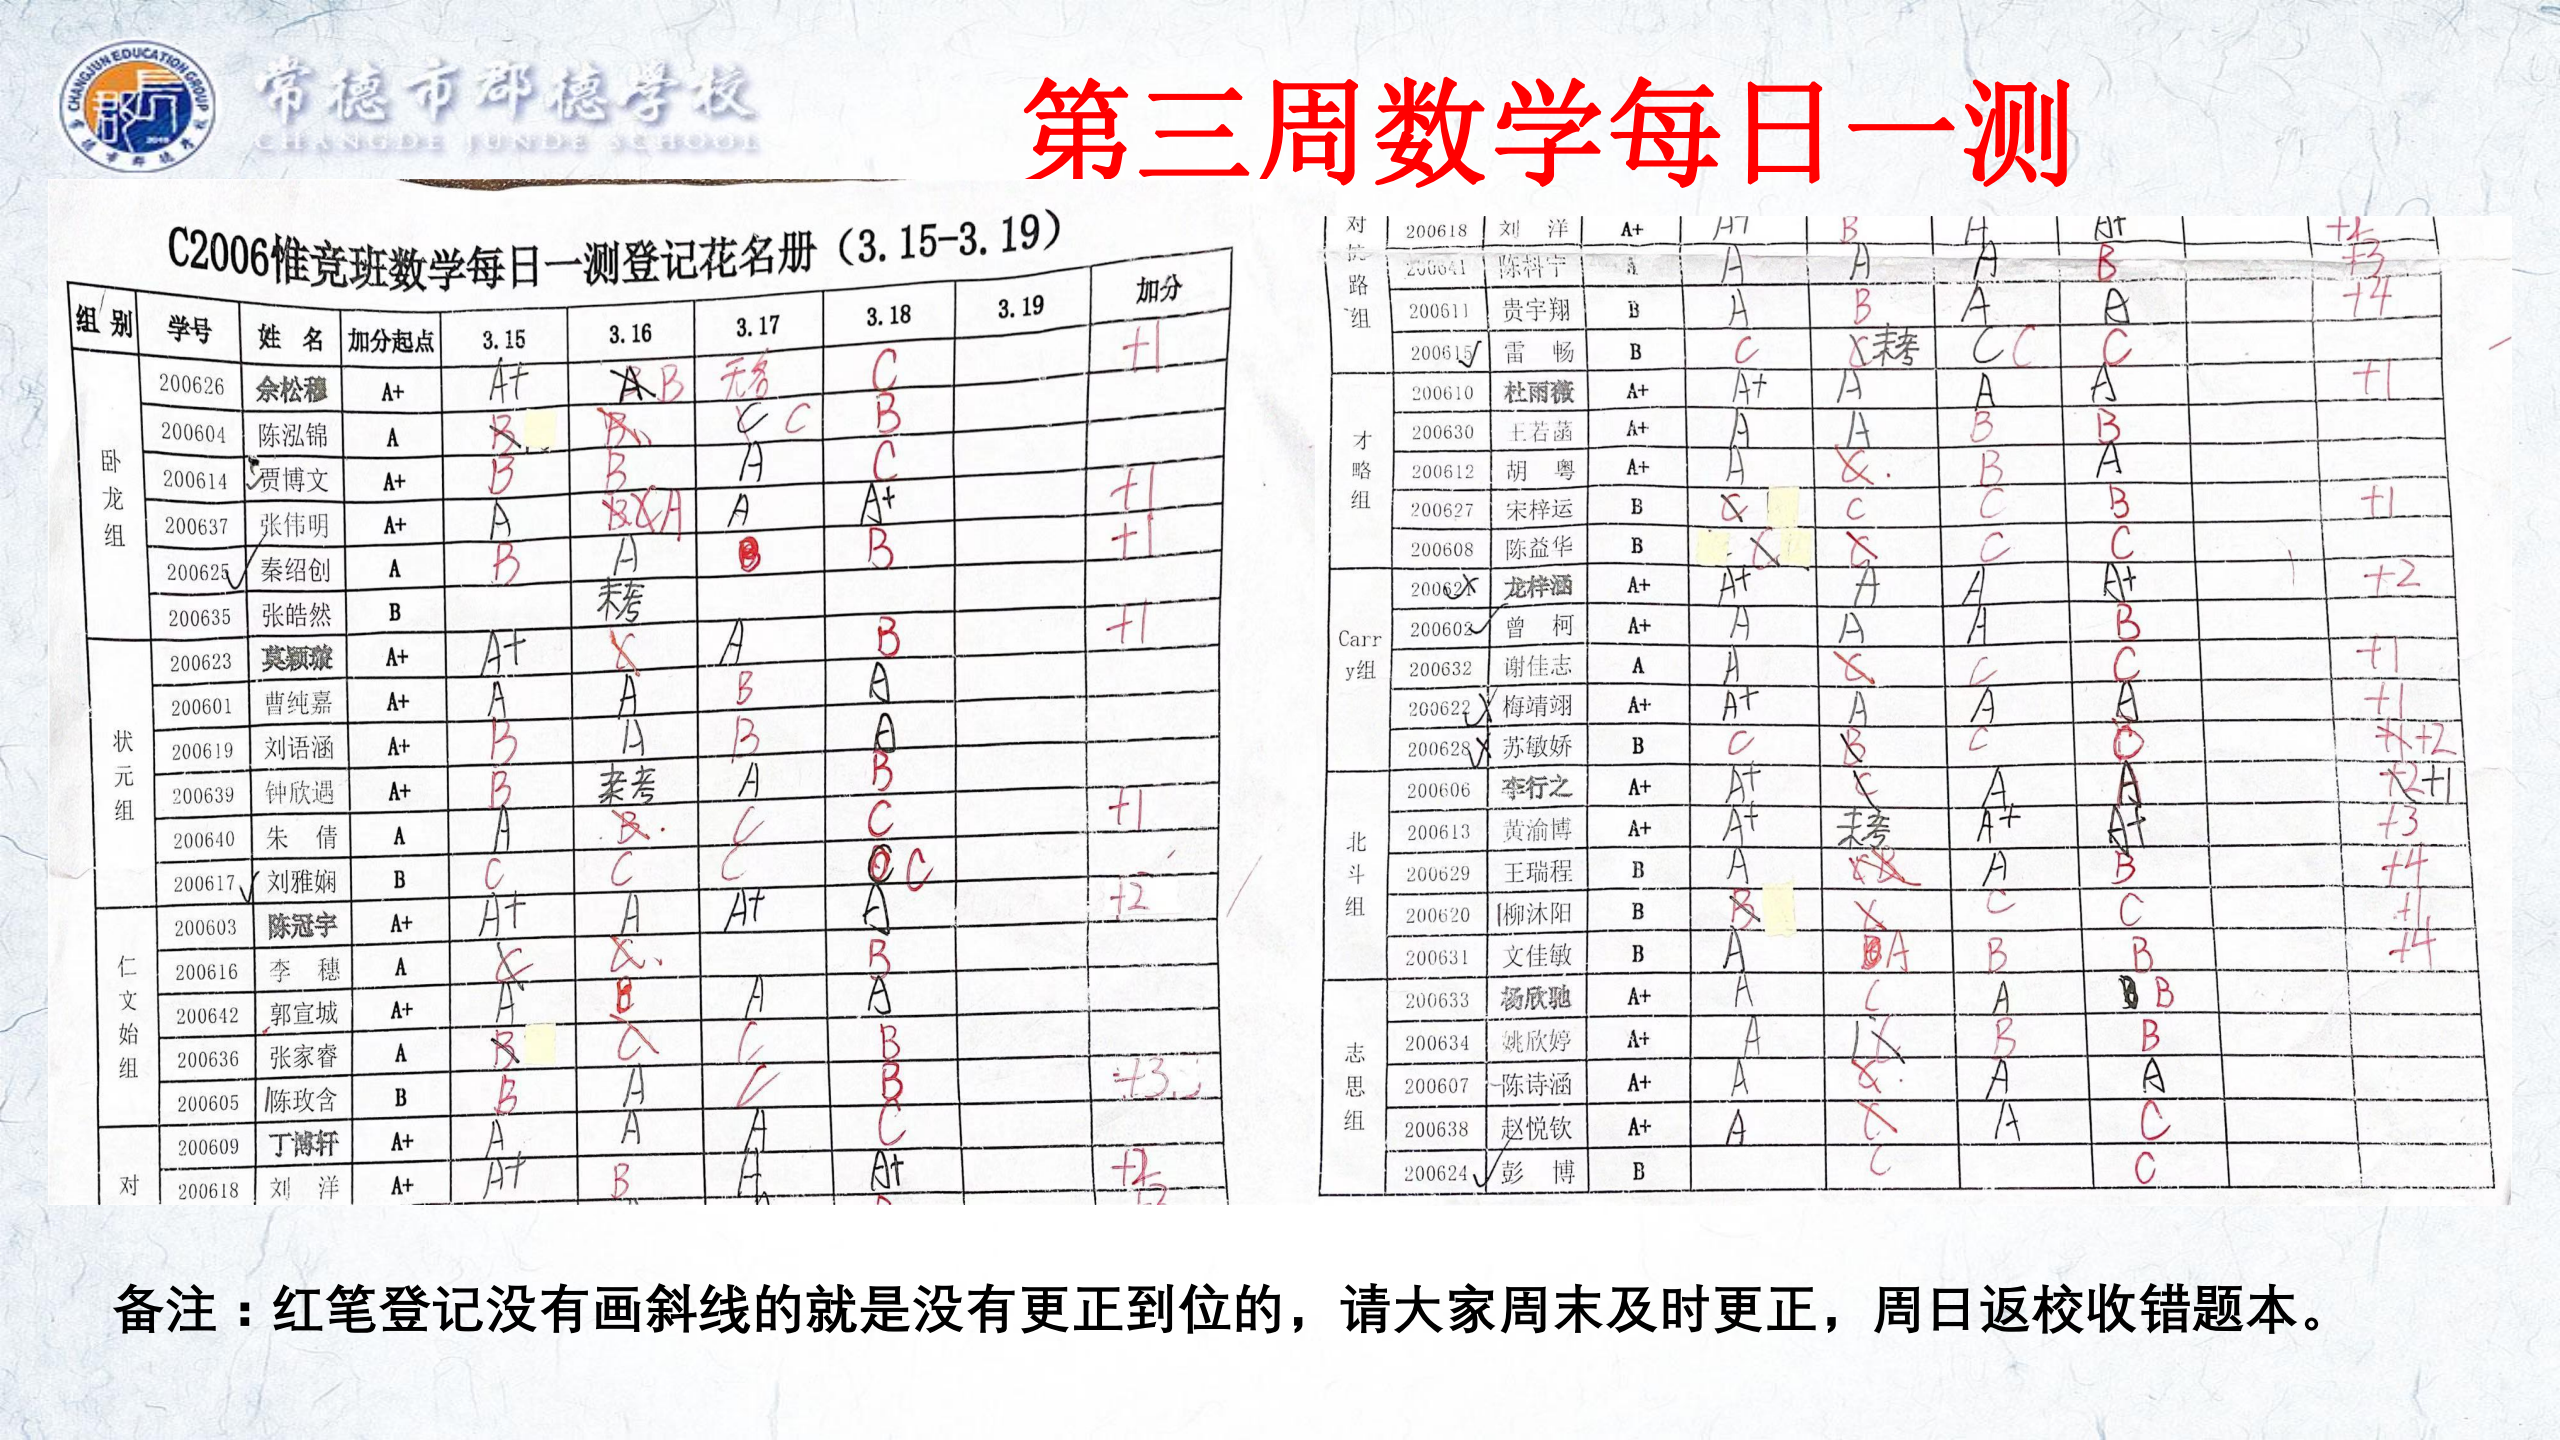 CHANGJUN EDUCATION GROUP
常德市郡德学校
CHANGDE JUNDE SCHOOL
第三周数学每日一测
C2006惟竞班数学每日一测登记花名册（3.15-3.19）
组别 学号 姓名 加分起点 3.15 3.16 3.17 3.18 3.19 加分
卧龙组
200626 佘松穆 A+ A+ B 无名 C +1
200604 陈泓锦 A B B C C B
200614 贾博文 A+ B B A C
200637 张伟明 A+ A B C A A A+ +1
200625 秦绍创 A B A B B +1
200635 张皓然 B 未考
状元组
200623 莫颖璇 A+ A+ C A B +1
200601 曹纯嘉 A+ A A B A
200619 刘语涵 A+ B A B A
200639 钟欣遇 A+ B 未考 A B
200640 朱倩 A A B C C +1
200617 刘雅娴 B C C C C
仁文始组
200603 陈冠宇 A+ A+ A A+ A +2
200616 李穗 A C C B
200642 郭宣城 A+ A B A A
200636 张家睿 A B C C B
200605 陈玫含 B B A C B +3
对
200609 丁博轩 A+ A A A C
200618 刘洋 A+ A+ B A A+ +2
对
路组
200618 刘洋 A+ A+ B A A+ +2
200641 陈科宇 A A A A B +3
200611 贵宇翔 B A B A A +4
200615 雷畅 B C C 未考 C C C
才略组
200610 杜雨薇 A+ A+ A A A +1
200630 王若菡 A+ A A B B
200612 胡粤 A+ A C B A
200627 宋梓运 B C C C B +1
200608 陈益华 B C C C C
Carry组
200621 龙梓涵 A+ A+ A A A+ +2
200602 曾柯 A+ A A A B
200632 谢佳志 A A C C C +1
200622 梅靖翊 A+ A+ A A A +1
200628 苏敏娇 B C B C +2
北斗组
200606 李行之 A+ A+ C A A +2 +1
200613 黄渝博 A+ A+ 未考 A+ A+ +3
200629 王瑞程 B A C B A B +4
200620 柳沐阳 B B C C +1
200631 文佳敏 B A B A B B +4
志思组
200633 杨欣驰 A+ A C A B B
200634 姚欣婷 A+ A B B
200607 陈诗涵 A+ A C A A
200638 赵悦钦 A+ A C A C
200624 彭博 B C C
备注：红笔登记没有画斜线的就是没有更正到位的，请大家周末及时更正，周日返校收错题本。